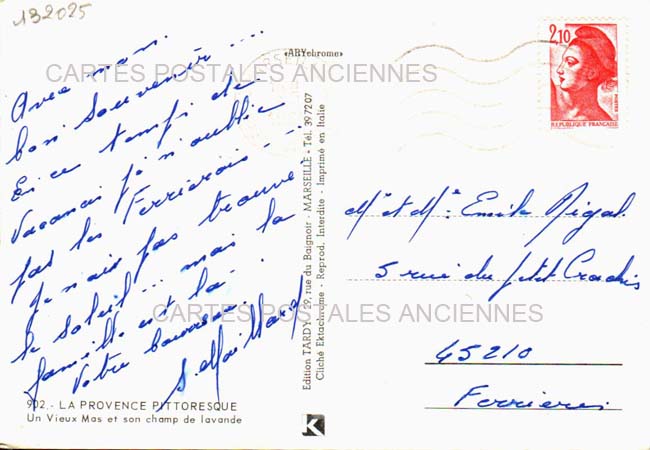 132025
«ARYchrome»
CARTES POSTALES ANCIENNES
2,10
POSTES
RÉPUBLIQUE FRANÇAISE
Avec mon
bon souvenir ...
En ce temps de
Vacances je n'oublie
pas les Ferriérois ...
Je n'ais pas trouvé
le soleil ... mais la
famille est là.
Votre
S. Maillard
Edition TARDY - 29, rue du Baignoir - MARSEILLE - Tél. 397207
Cliché Ektachrome - Reprod. Interdite - Imprimé en Italie
Mr et Me Emile Rigal.
5 rue du petit
CARTES POSTALES ANCIENNES
45210
Ferrieres
902.- LA PROVENCE PITTORESQUE
Un Vieux Mas et son champ de lavande
K